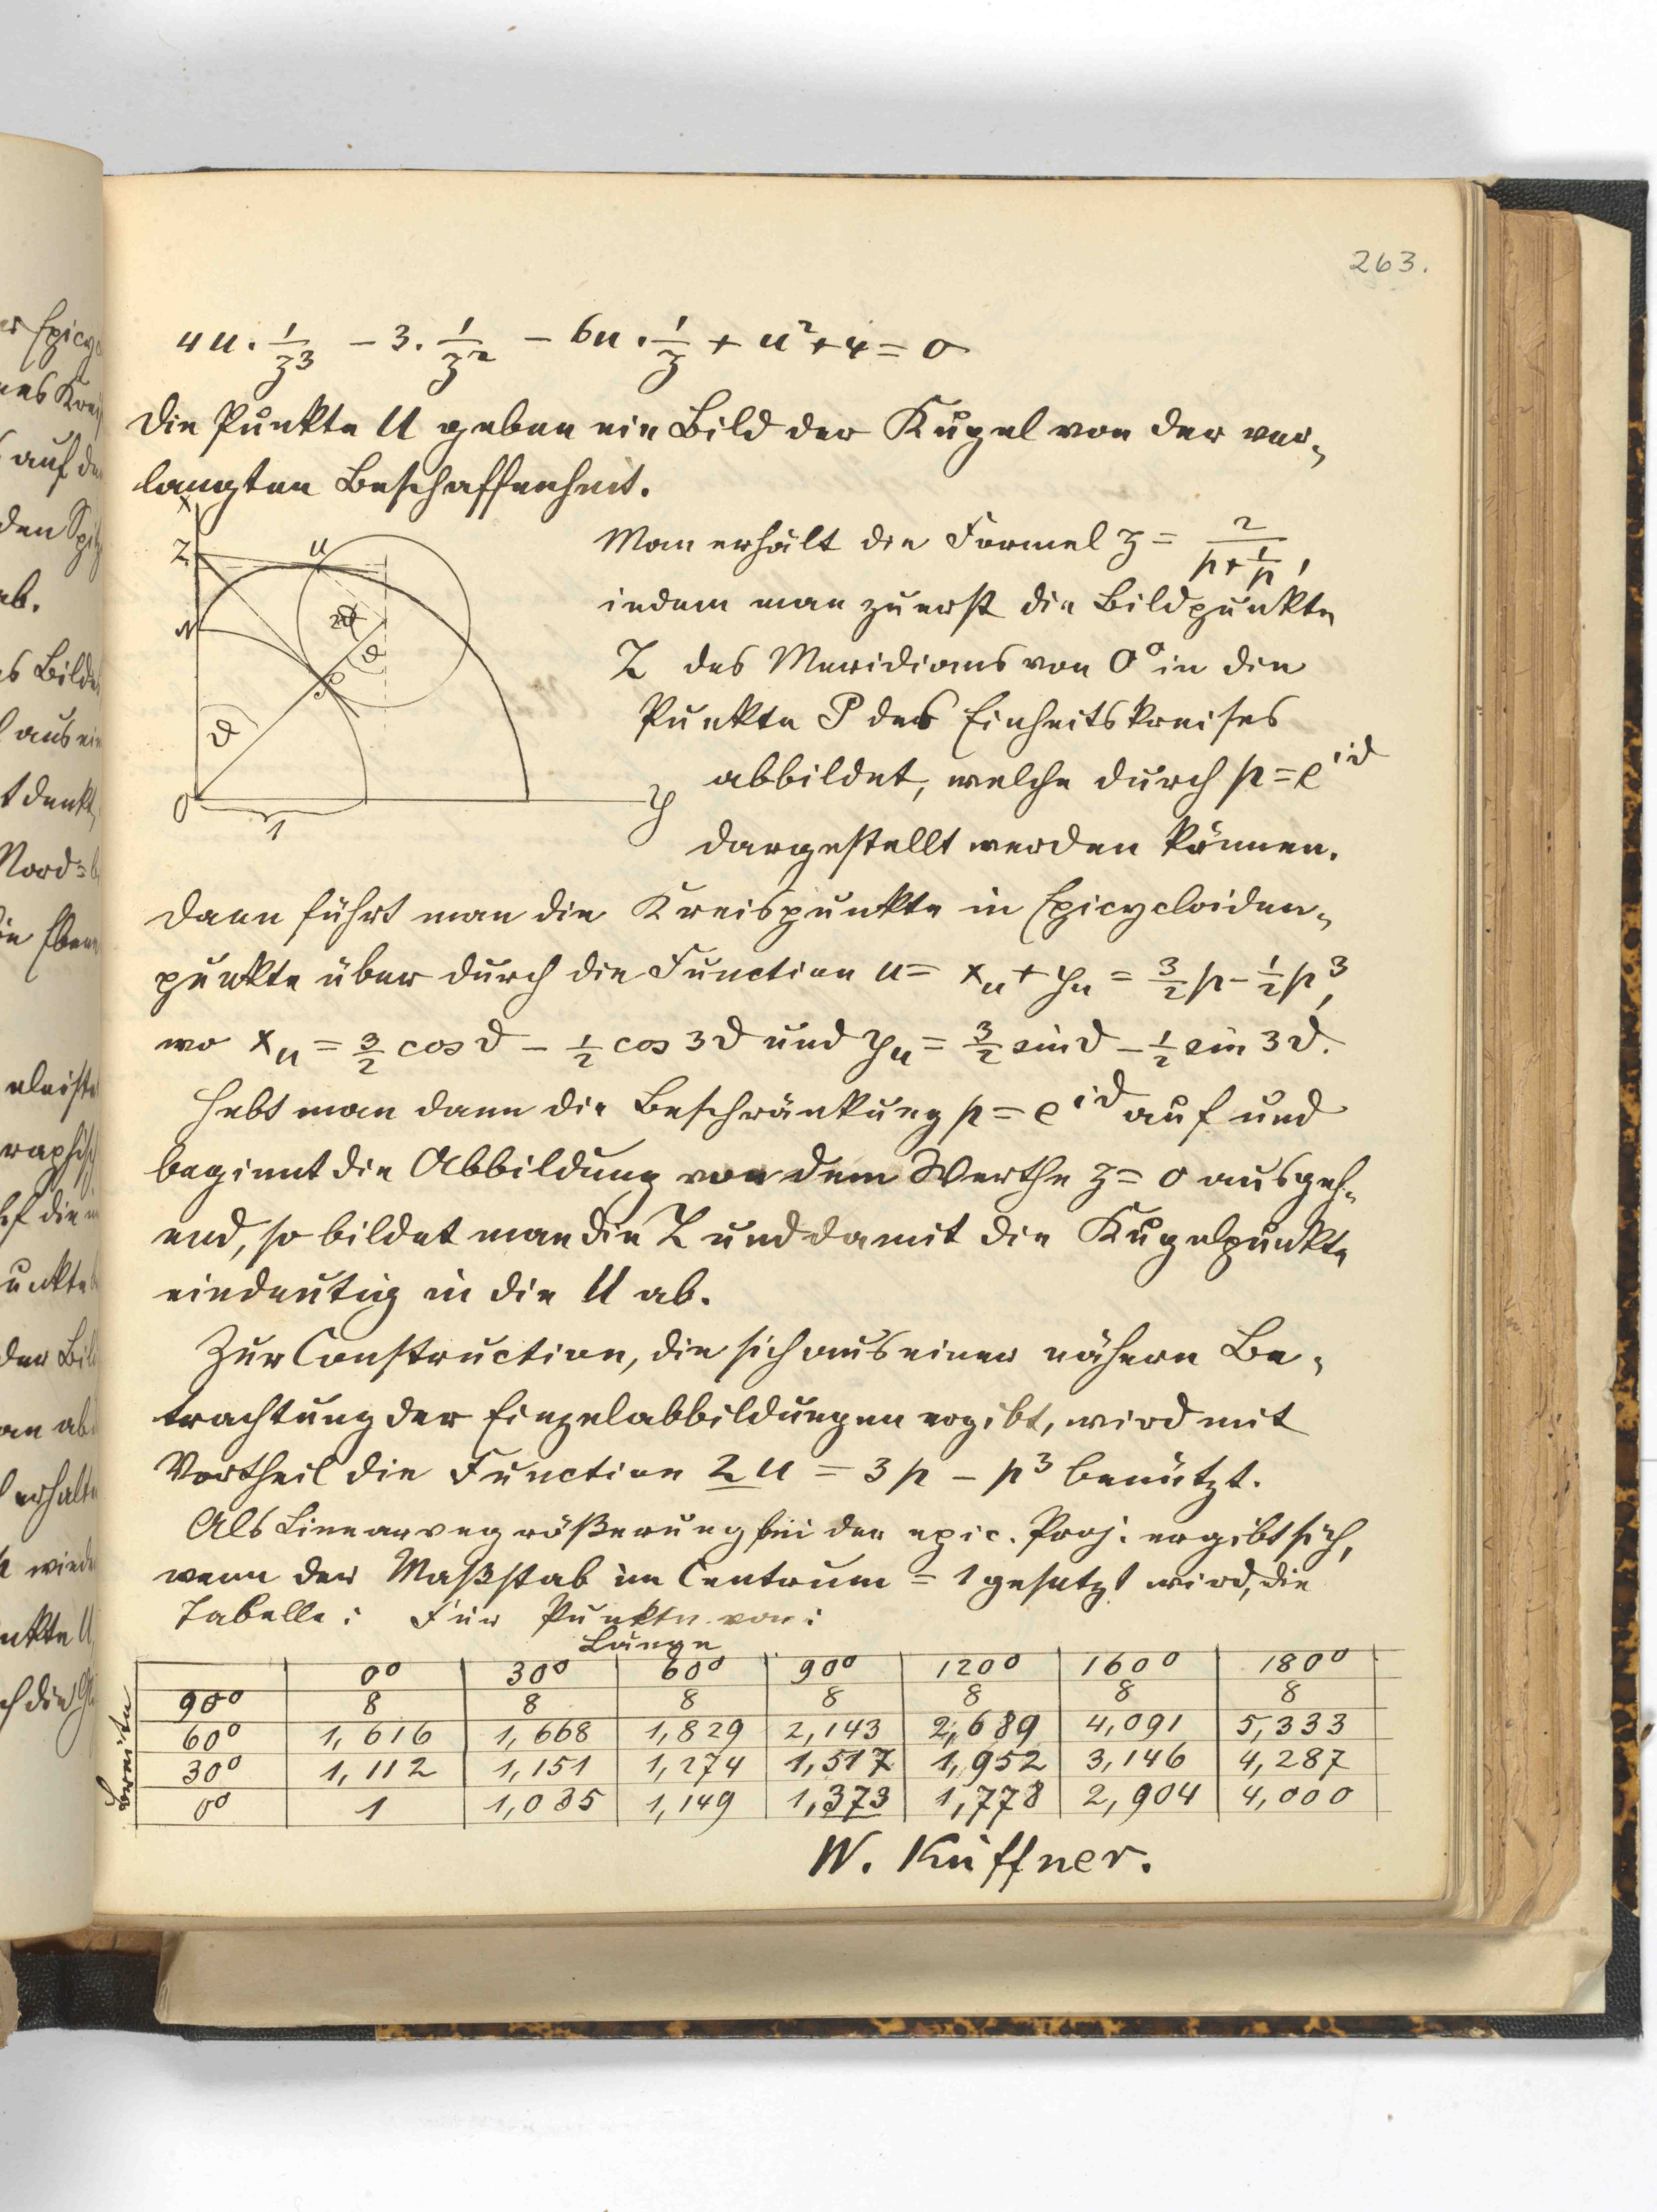 263.
4u · 1/z³ − 3 · 1/z² − 6u · 1/z + u² + 4 = 0
Die Punkte U geben ein Bild der Kugel von der ver-
langten Beschaffenheit.
Man erhält die Formel z = 2/(p + 1/p),
indem man zuerst die Bildpunkte
Z des Meridians von 0° in die
Punkte P des Einheitskreises
abbildet, welche durch p = e^{iϑ}
dargestellt werden können.
X
Z
U
N
2ϑ
ϑ
P
ϑ
O
1
y
Dann führt man die Kreispunkte in Epicycloiden-
punkte über durch die Function u = x_u + y_u = 3/2 p − 1/2 p³,
wo x_u = 3/2 cos ϑ − 1/2 cos 3ϑ und y_u = 3/2 sin ϑ − 1/2 sin 3ϑ.
Hebt man dann die Beschränkung p = e^{iϑ} auf und
beginnt die Abbildung von dem Werthe z = 0 ausgeh-
end, so bildet man die Z und damit die Kugelpunkte
eindeutig in die U ab.
Zur Construction, die sich aus einer nähern Be-
trachtung der Einzelabbildungen ergibt, wird mit
Vortheil die Function 2u = 3p − p³ benützt.
Als Linearvergrößerung bei der epic. Proj. ergibt sich,
wenn der Maßstab im Centrum = 1 gesetzt wird, die
Tabelle: Für Punkte von:
Länge
0° 30° 60° 90° 120° 160° 180°
90° 8 8 8 8 8 8 8
60° 1,616 1,668 1,829 2,143 2,689 4,091 5,333
30° 1,112 1,151 1,274 1,517 1,952 3,146 4,287
0° 1 1,035 1,149 1,373 1,778 2,904 4,000
W. Küffner.